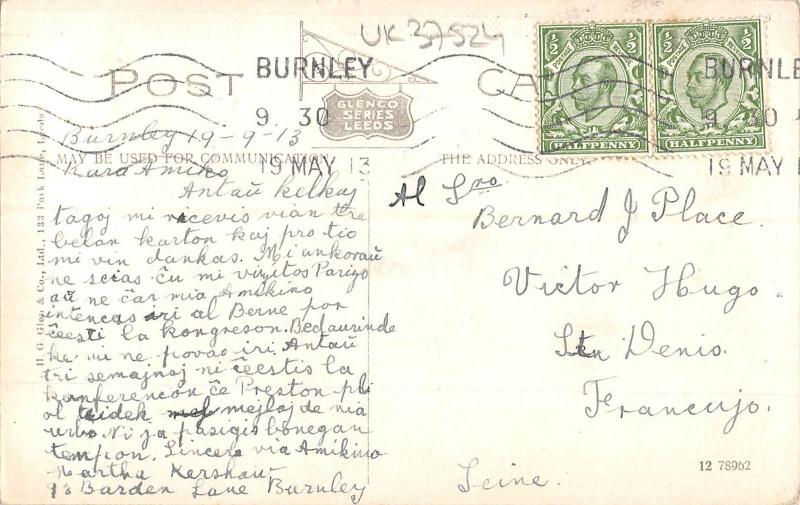 UK 37524
POST CARD
BURNLEY
9. 30
19 MAY 13
GLENCO
SERIES
LEEDS
½ ½
POSTAGE REVENUE
HALFPENNY
½ ½
POSTAGE REVENUE
HALFPENNY
BURNLE
9. 30
19 MAY 1
MAY BE USED FOR COMMUNICATION
THE ADDRESS ONLY
H. G. Glen & Co., Ltd., 133 Park Lane, Leeds.
Burnley 19-9-13
Kara Amiko
Antaŭ kelkaj
tagoj mi ricevis vian tre
belan karton kaj pro tio
mi vin dankas. Mi ankoraŭ
ne scias ĉu mi vizitos Parizo
aŭ ne ĉar mia Amikino
intencas iri al Berne por
ĉeesti la kongreson. Bedaurinde
ke mi ne povas iri. Antaŭ
tri semajnoj ni ĉeestis la
konferencon ĉe Preston pli
ol mejloj de nia
urbo. Ni ja pasigis bonegan
tempon. Sincere via Amikino
Martha Kershaw
13 Barden Lane Burnley
Al Sro
Bernard J Place.
Victor Hugo.
Stn Denis.
Francujo.
Seine.
12 78962